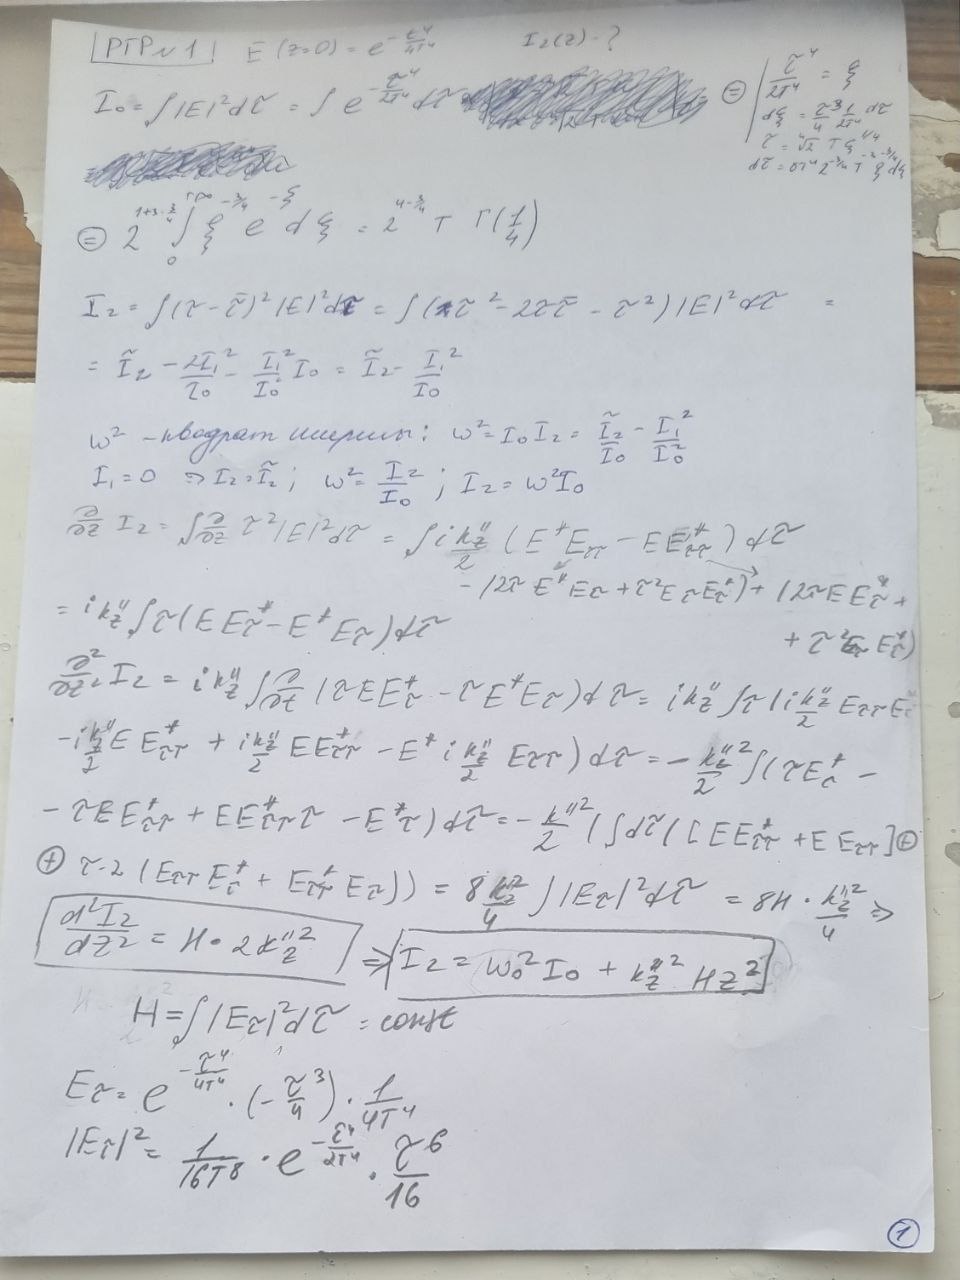 РГР №1 E(z=0) = e^{-τ⁴/4T⁴} I₂(z) - ?
I₀ = ∫|E|²dτ = ∫ e^{-τ⁴/2T⁴} dτ
⊜ | τ⁴/2T⁴ = ξ
dξ = τ³/4 1/2T⁴ dτ
τ = ⁴√2 T ξ^{1/4}
⊜ ∫₀^{+∞} ξ^{-3/4} e^{-ξ} dξ = T Γ(1/4)
I₂ = ∫(τ - τ̄)²|E|²dτ = ∫(τ² - 2ττ̄ - τ̄²)|E|²dτ =
= Ĩ₂ - 2I₁²/I₀ - I₁²/I₀² I₀ = Ĩ₂ - I₁²/I₀
w² - квадрат ширины: w² = I₀I₂ = Ĩ₂/I₀ - I₁²/I₀²
I₁ = 0 => I₂ = Ĩ₂; w² = I₂/I₀; I₂ = w²I₀
∂/∂z I₂ = ∫∂/∂z τ²|E|²dτ = ∫ i k₂''/2 (E*Eττ - EE*ττ) dτ
- (2τE*Eτ + τ²EτE*τ) + (2τEE*τ +
+ τ²EτE*τ)
= i k₂'' ∫τ(EE*τ - E*Eτ)dτ
∂²/∂z² I₂ = i k₂'' ∫∂/∂z (τEE*τ - τE*Eτ)dτ = i k₂'' ∫τ(i k₂''/2 EττE*τ
- i k₂''/2 EE*ττ + i k₂''/2 EE*ττ - E* i k₂''/2 Eττ) dτ = - k₂''²/2 ∫(τE*τ -
- τEE*ττ + EE*ττ τ - E*τ) dτ = - k''²/2 (∫dτ([EE*ττ + EEττ] ⊕
⊕ τ·2 (EττE*τ + E*ττEτ)) = 8 k₂''²/4 ∫|Eτ|²dτ = 8H · k₂''²/4 =>
d²I₂/dz² = H · 2k₂''² => I₂ = w₀²I₀ + k₂''² H z²
H = ∫|Eτ|²dτ = const
Eτ = e^{-τ⁴/4T⁴} · (-τ³/4) · 1/4T⁴
|Eτ|² = 1/16T⁸ · e^{-τ⁴/2T⁴} · τ⁶/16
1